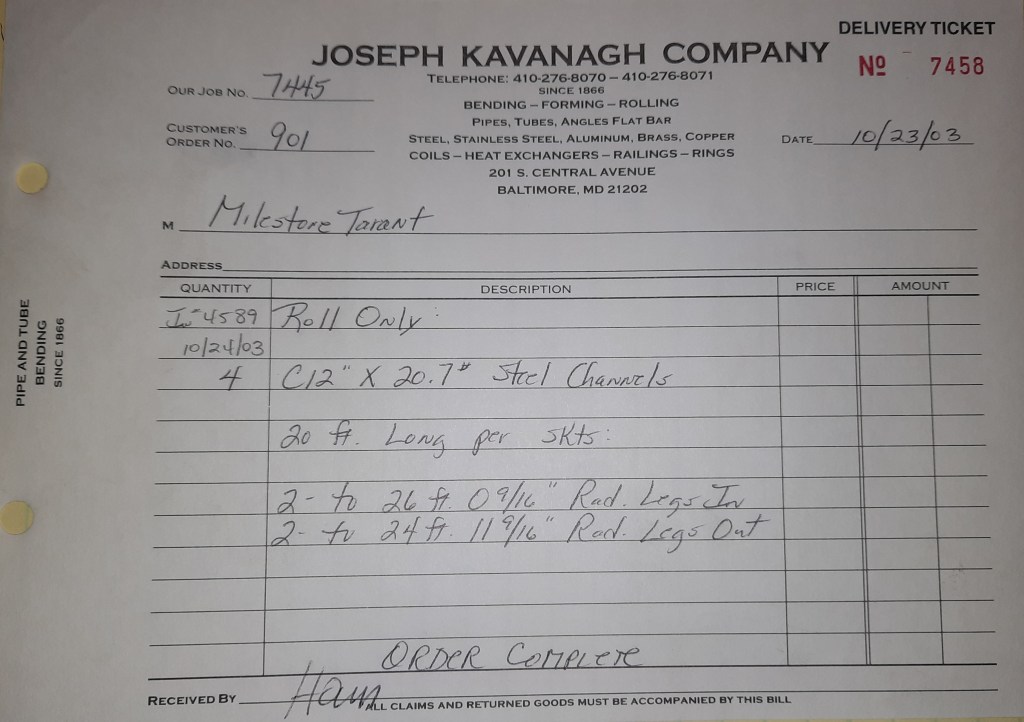 DELIVERY TICKET
JOSEPH KAVANAGH COMPANY
Nº 7458
TELEPHONE: 410-276-8070 – 410-276-8071
SINCE 1866
OUR JOB NO. 7445
BENDING – FORMING – ROLLING
PIPES, TUBES, ANGLES FLAT BAR
CUSTOMER'S
ORDER NO. 901
STEEL, STAINLESS STEEL, ALUMINUM, BRASS, COPPER
DATE 10/23/03
COILS – HEAT EXCHANGERS – RAILINGS – RINGS
201 S. CENTRAL AVENUE
BALTIMORE, MD 21202
M Milestone Tarant
ADDRESS
QUANTITY DESCRIPTION PRICE AMOUNT
4589 Roll Only:
10/24/03
4 C12" X 20.7# Steel Channels
20 ft. Long per skts:
2- to 26 ft. 0 9/16" Rad. Legs In
2- to 24 ft. 11 9/16" Rad. Legs Out
ORDER COMPLETE
RECEIVED BY
ALL CLAIMS AND RETURNED GOODS MUST BE ACCOMPANIED BY THIS BILL
PIPE AND TUBE
BENDING
SINCE 1866